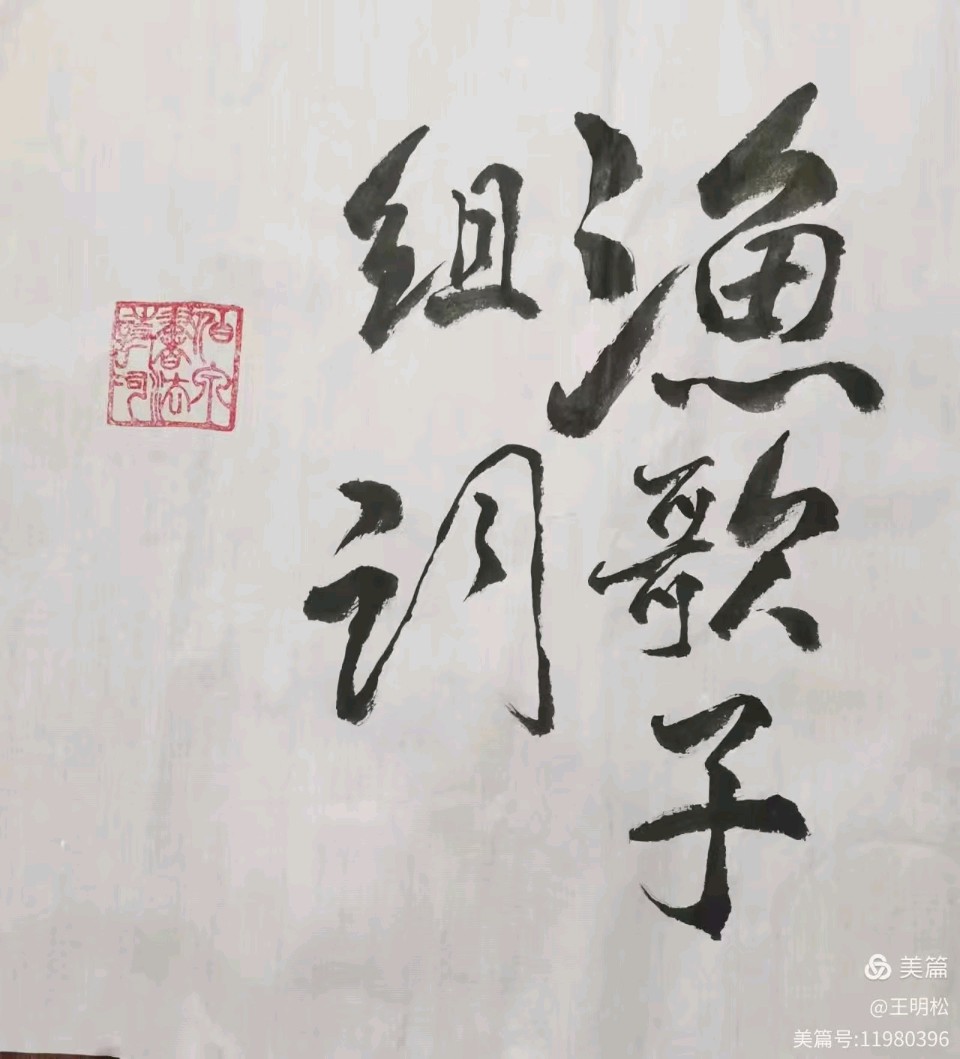 漁歌子
组词
書法
美篇
@王明松
美篇号:11980396